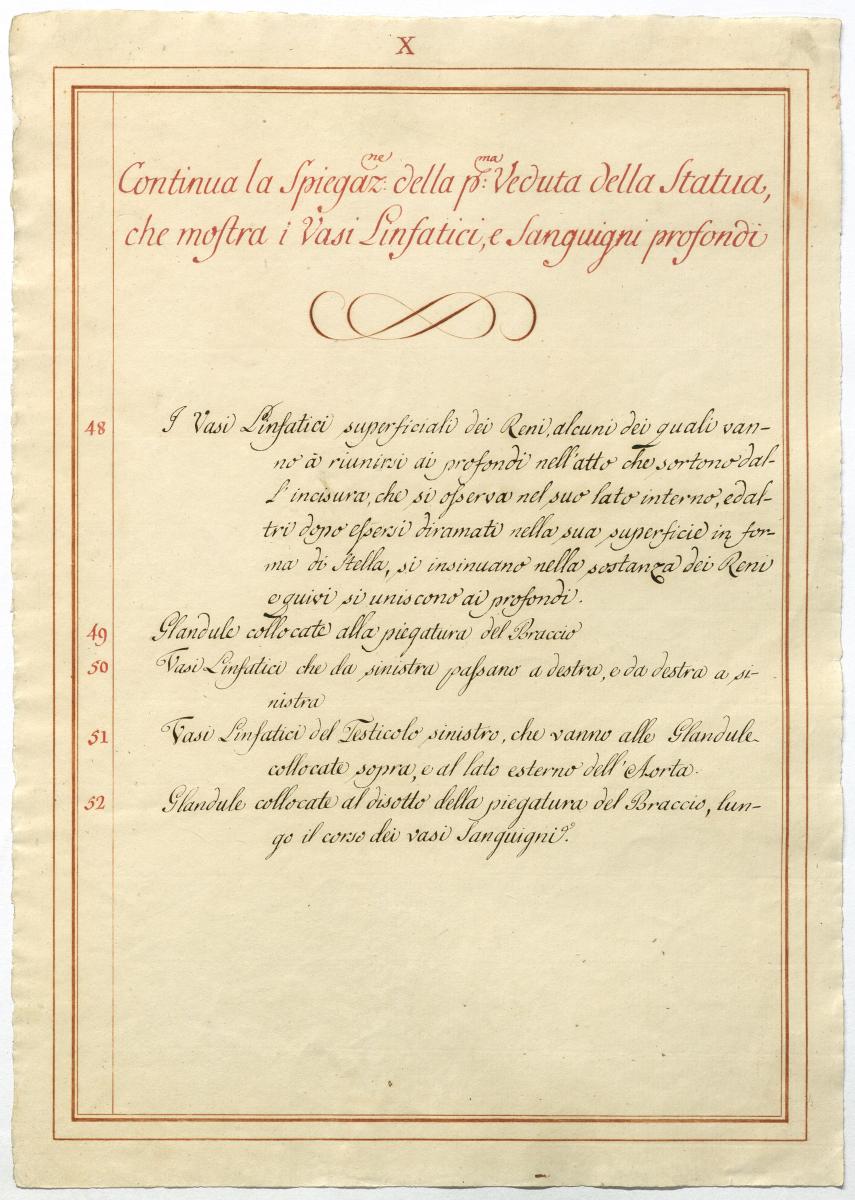 X
Continua la Spiegaz:ne della p:ma Veduta della Statua,
che mostra i Vasi Linfatici, e Sanguigni profondi
48 I Vasi Linfatici superficiali dei Reni, alcuni dei quali van-
no à riunirsi ai profondi nell'atto che sortono dal-
l'incisura, che si osserva nel suo lato interno, ed al-
tri dopo essersi diramati nella sua superficie in for-
ma di Stella, si insinuano nella sostanza dei Reni
e quivi si uniscono ai profondi.
49 Glandule collocate alla piegatura del Braccio
50 Vasi Linfatici che da sinistra passano a destra, e da destra a si-
nistra
51 Vasi Linfatici del Testicolo sinistro, che vanno alle Glandule
collocate sopra, e al lato esterno dell'Aorta.
52 Glandule collocate al disotto della piegatura del Braccio, lun-
go il corso dei vasi Sanguigni.